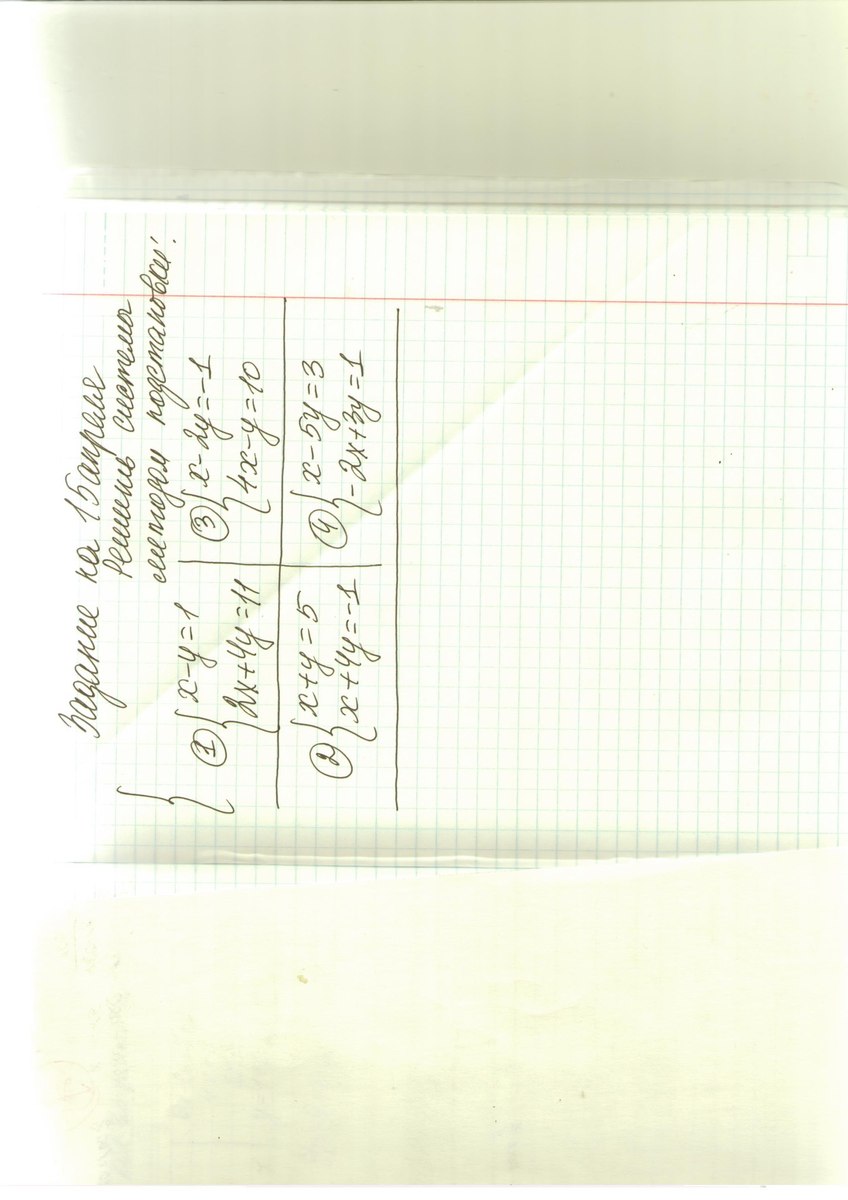 Задание на 15 апреля
Решить системы
методом подстановки:
① { x-y=1
{ 2x+4y=11
③ { x-2y=-1
{ 4x-y=10
② { x+y=5
{ x+4y=-1
④ { x-5y=3
{ -2x+3y=1